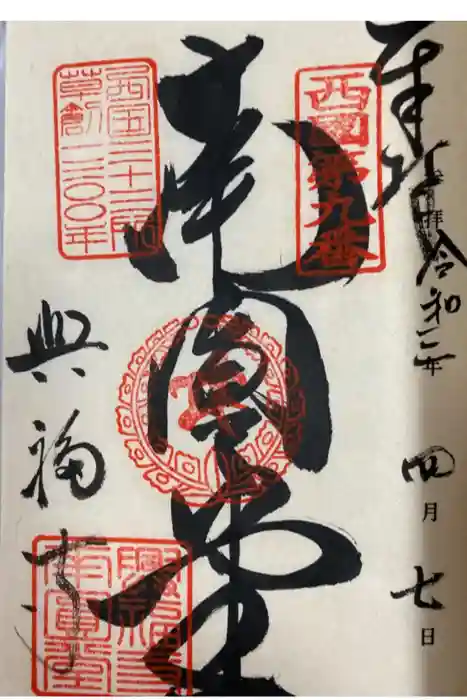 奉拝
参拝
令和二年
四月七日
西國第九番
南圓堂
西国三十三所
草創一三〇〇年
興福寺
興福寺
南圓堂